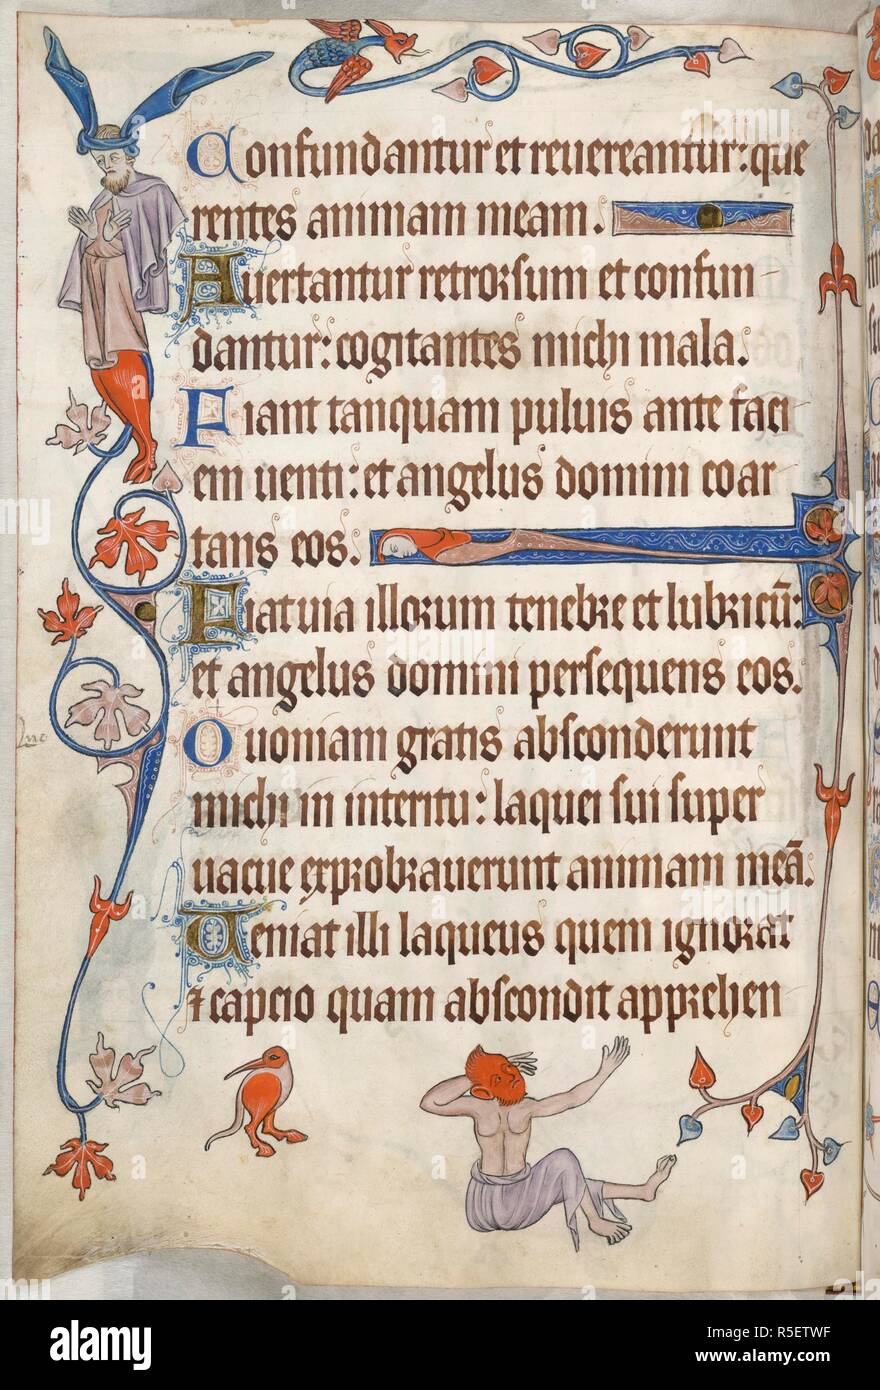 Confundantur et reuereantur: que
rentes animam meam.
Auertantur retrorsum et confun
dantur: cogitantes michi mala.
Fiant tanquam puluis ante faci
em uenti: et angelus domini coar
tans eos.
Fiat uia illorum tenebre et lubricū:
et angelus domini persequens eos.
Quoniam gratis absconderunt
michi in interitu: laquei sui super
uacue exprobrauerunt animam meā.
Ueniat illi laqueus quem ignorat
⁊ capcio quam abscondit apprehen
alamy
Image ID: R5ETWF
www.alamy.com